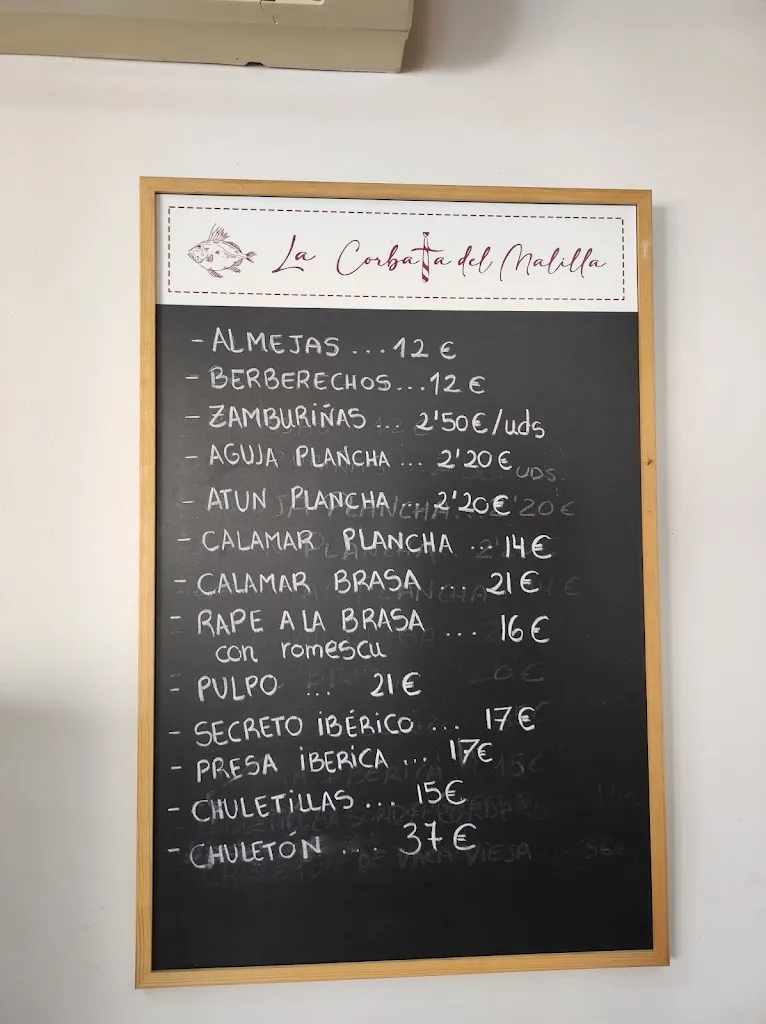 La Corbata del Malilla
- ALMEJAS ... 12 €
- BERBERECHOS... 12 €
- ZAMBURIÑAS ... 2'50€/uds
- AGUJA PLANCHA ... 2'20€
UDS
- ATUN PLANCHA 2'20€
- CALAMAR PLANCHA ... 14€
- CALAMAR BRASA ... 21€
- RAPE A LA BRASA ... 16€
con romescu
- PULPO ... 21€
- SECRETO IBÉRICO ... 17€
- PRESA IBERICA ... 17€
- CHULETILLAS ... 15€
- CHULETÓN ... 37€